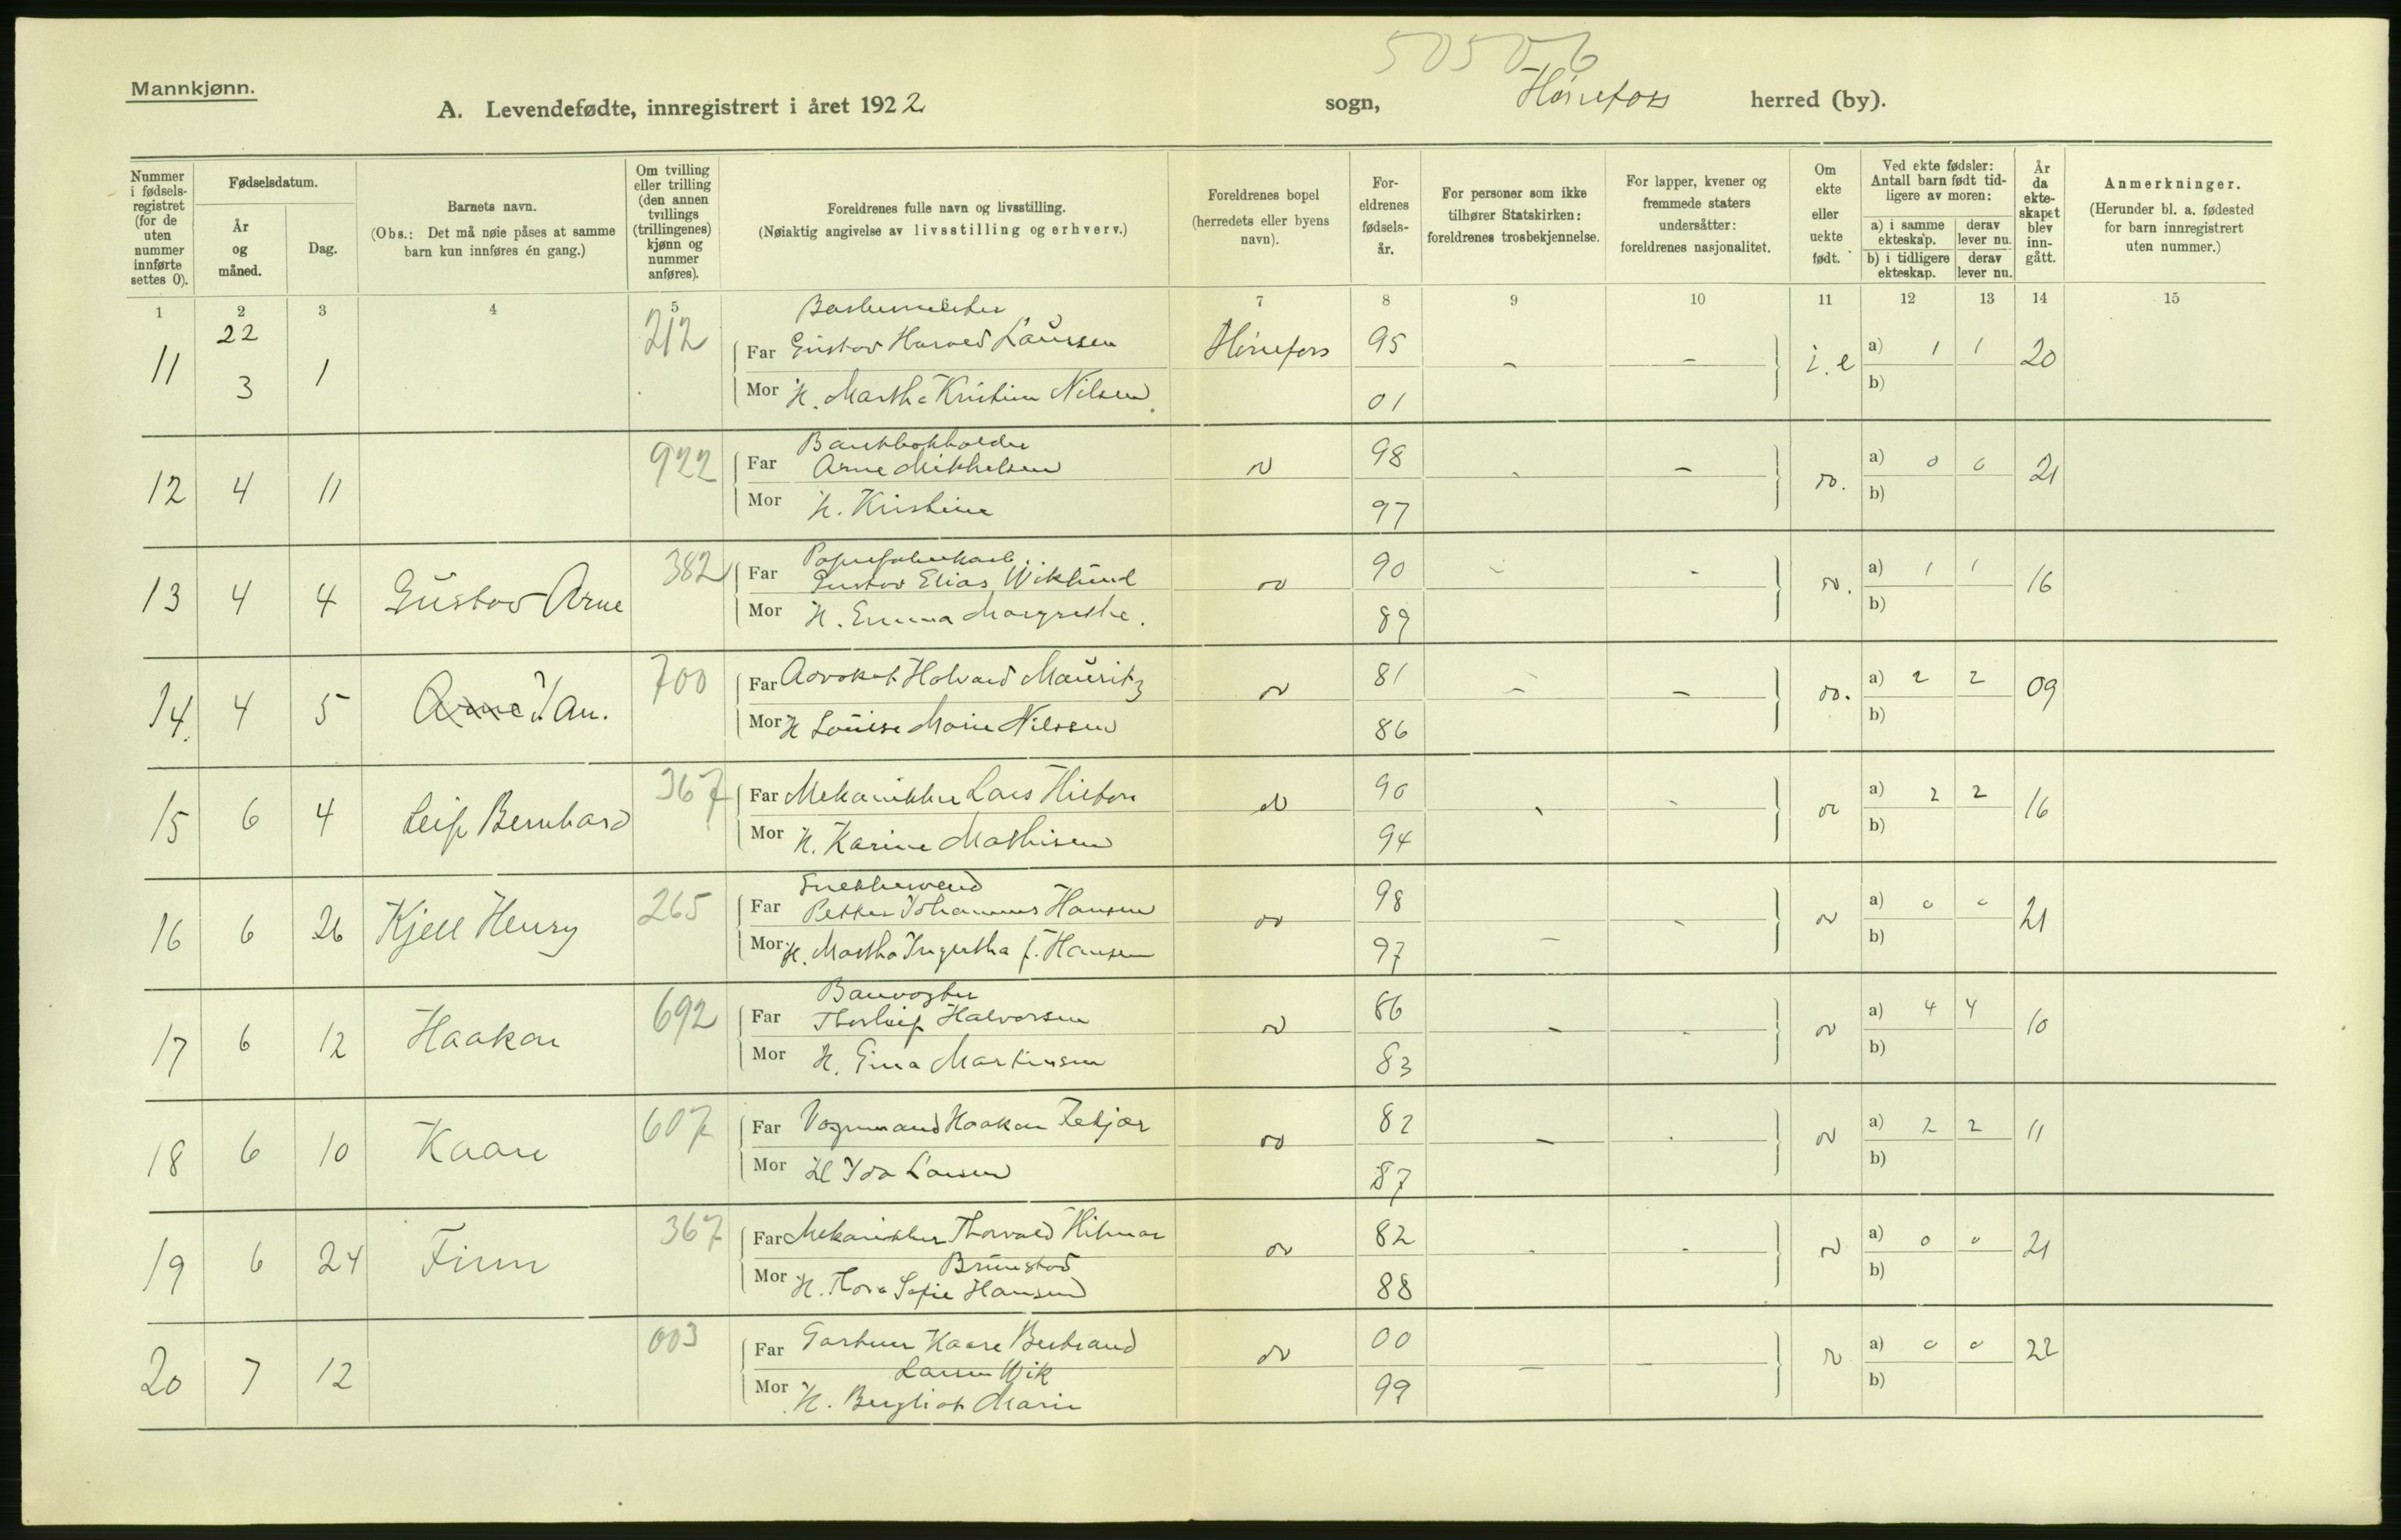 50506
Mannkjønn.
A. Levendefødte, innregistrert i året 1922 sogn, Hønefoss herred (by).
Nummer i fødselsregistret (for de uten nummer innførte settes 0).
Fødselsdatum.
År og måned.
Dag.
Barnets navn.
(Obs.: Det må nøie påses at samme barn kun innføres én gang.)
Om tvilling eller trilling (den annen tvillings (trillingenes) kjønn og nummer anføres).
Foreldrenes fulle navn og livsstilling.
(Nøiaktig angivelse av livsstilling og erhverv.)
Foreldrenes bopel (herredets eller byens navn).
Foreldrenes fødselsår.
For personer som ikke tilhører Statskirken: foreldrenes trosbekjennelse.
For lapper, kvener og fremmede staters undersåtter: foreldrenes nasjonalitet.
Om ekte eller uekte født.
Ved ekte fødsler: Antall barn født tidligere av moren:
a) i samme ekteskap. derav lever nu.
b) i tidligere ekteskap. derav lever nu.
År da ekteskapet blev inngått.
Anmerkninger.
(Herunder bl. a. fødested for barn innregistrert uten nummer.)
1 2 3 4 5 7 8 9 10 11 12 13 14 15
11 22 3 1 212 Far Gustav Harald Laursen Hønefoss 95 - - i.e a) 1 1 20
Mor H. Martha Kristine Nilsen 01 b)
12 4 11 922 Bankbokholder
Far Arne Mikkelsen 98 - - a) 0 0 21
Mor H. Kristine 97 b)
13 4 4 Gustav Arne 382 Papirfabrikarb.
Far Gustav Elias Wiklund 90 - - a) 1 1 16
Mor H. Emma Margrethe. 89 b)
14. 4 5 Arne Jan. 700 Far Advokat Halvard Mauritz 81 - - a) 2 2 09
Mor H Louise Marie Nilssen 86 b)
15 6 4 Leif Bernhard 367 Far Mekanikker Lars 90 - - a) 2 2 16
Mor H. Karine Mathisen 94 b)
16 6 26 Kjell Henry 265 Snekkersvend
Far Petter Johannes Hansen 98 - - a) 0 0 21
Mor H. Martha Ingertha f. Hansen 97 b)
17 6 12 Haakon 692 Banevogter
Far Thorleif Halvorsen 86 - - a) 4 4 10
Mor H. Gina Martinsen 83 b)
18 6 10 Kaare 607 Far Vognmand Haakon 82 - - a) 2 2 11
Mor H Ida Larsen 87 b)
19 6 24 Finn 367 Far Mekanikker Thorvald Hilmar 82 - - a) 0 0 21
Brunstad
Mor H. Thora Sofie Hansen 88 b)
20 7 12 003 Far Gartner Kaare Bertrand 00 - - a) 0 0 22
Larsen Wik
Mor H. Bergliot Marie 99 b)